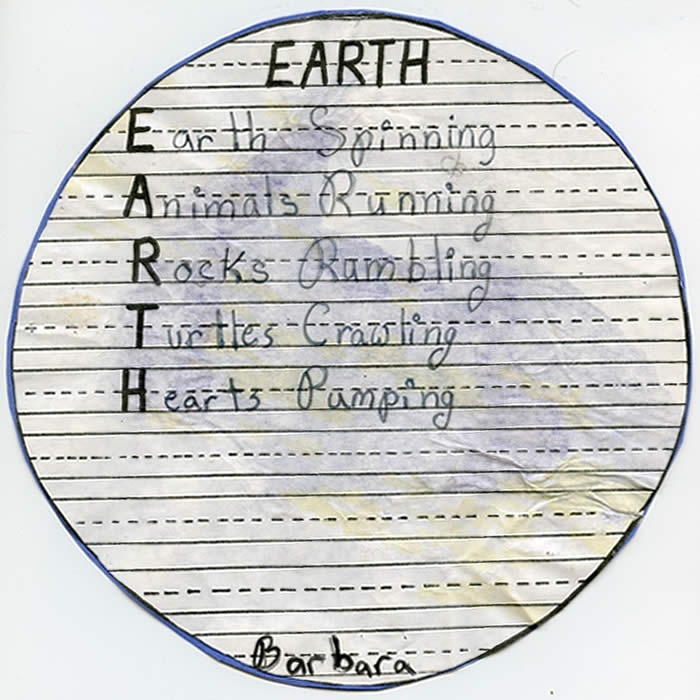 EARTH
Earth Spinning
Animals Running
Rocks Rumbling
Turtles Crawling
Hearts Pumping
Barbara